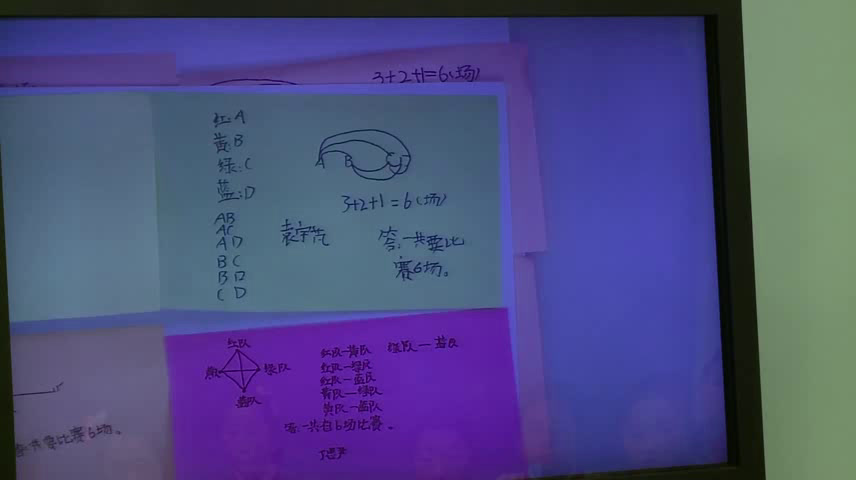 3+2+1=6(场)
红:A
黄:B
绿:C
蓝:D
AB
AC
AD
BC
BD
CD
A B C D
3+2+1=6(场)
答:一共要比
赛6场。
红队
绿队
蓝队
红队—黄队 绿队—蓝队
红队—绿队
红队—蓝队
黄队—绿队
黄队—蓝队
答:一共有6场比赛。
共要比赛6场。